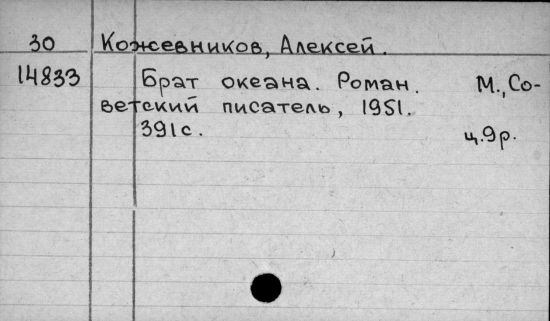 30 Кожевников, Алексей.
14833 Брат океана. Роман. М., Со-
ветский писатель, 1951.
391с. ц.9р.